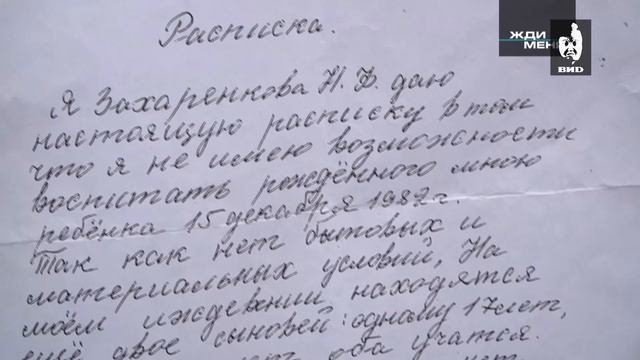 ЖДИ
МЕНЯ
ВИD
Расписка.
Я Захаренкова Н. В. даю
настоящую расписку в том
что я не имею возможности
воспитать рождённого мною
ребёнка 15 декабря 1987 г.
Так как нет бытовых и
материальных условий, На
моём иждевнии находятся
ещё двое сыновей: одному 17 лет,
оба учатся.